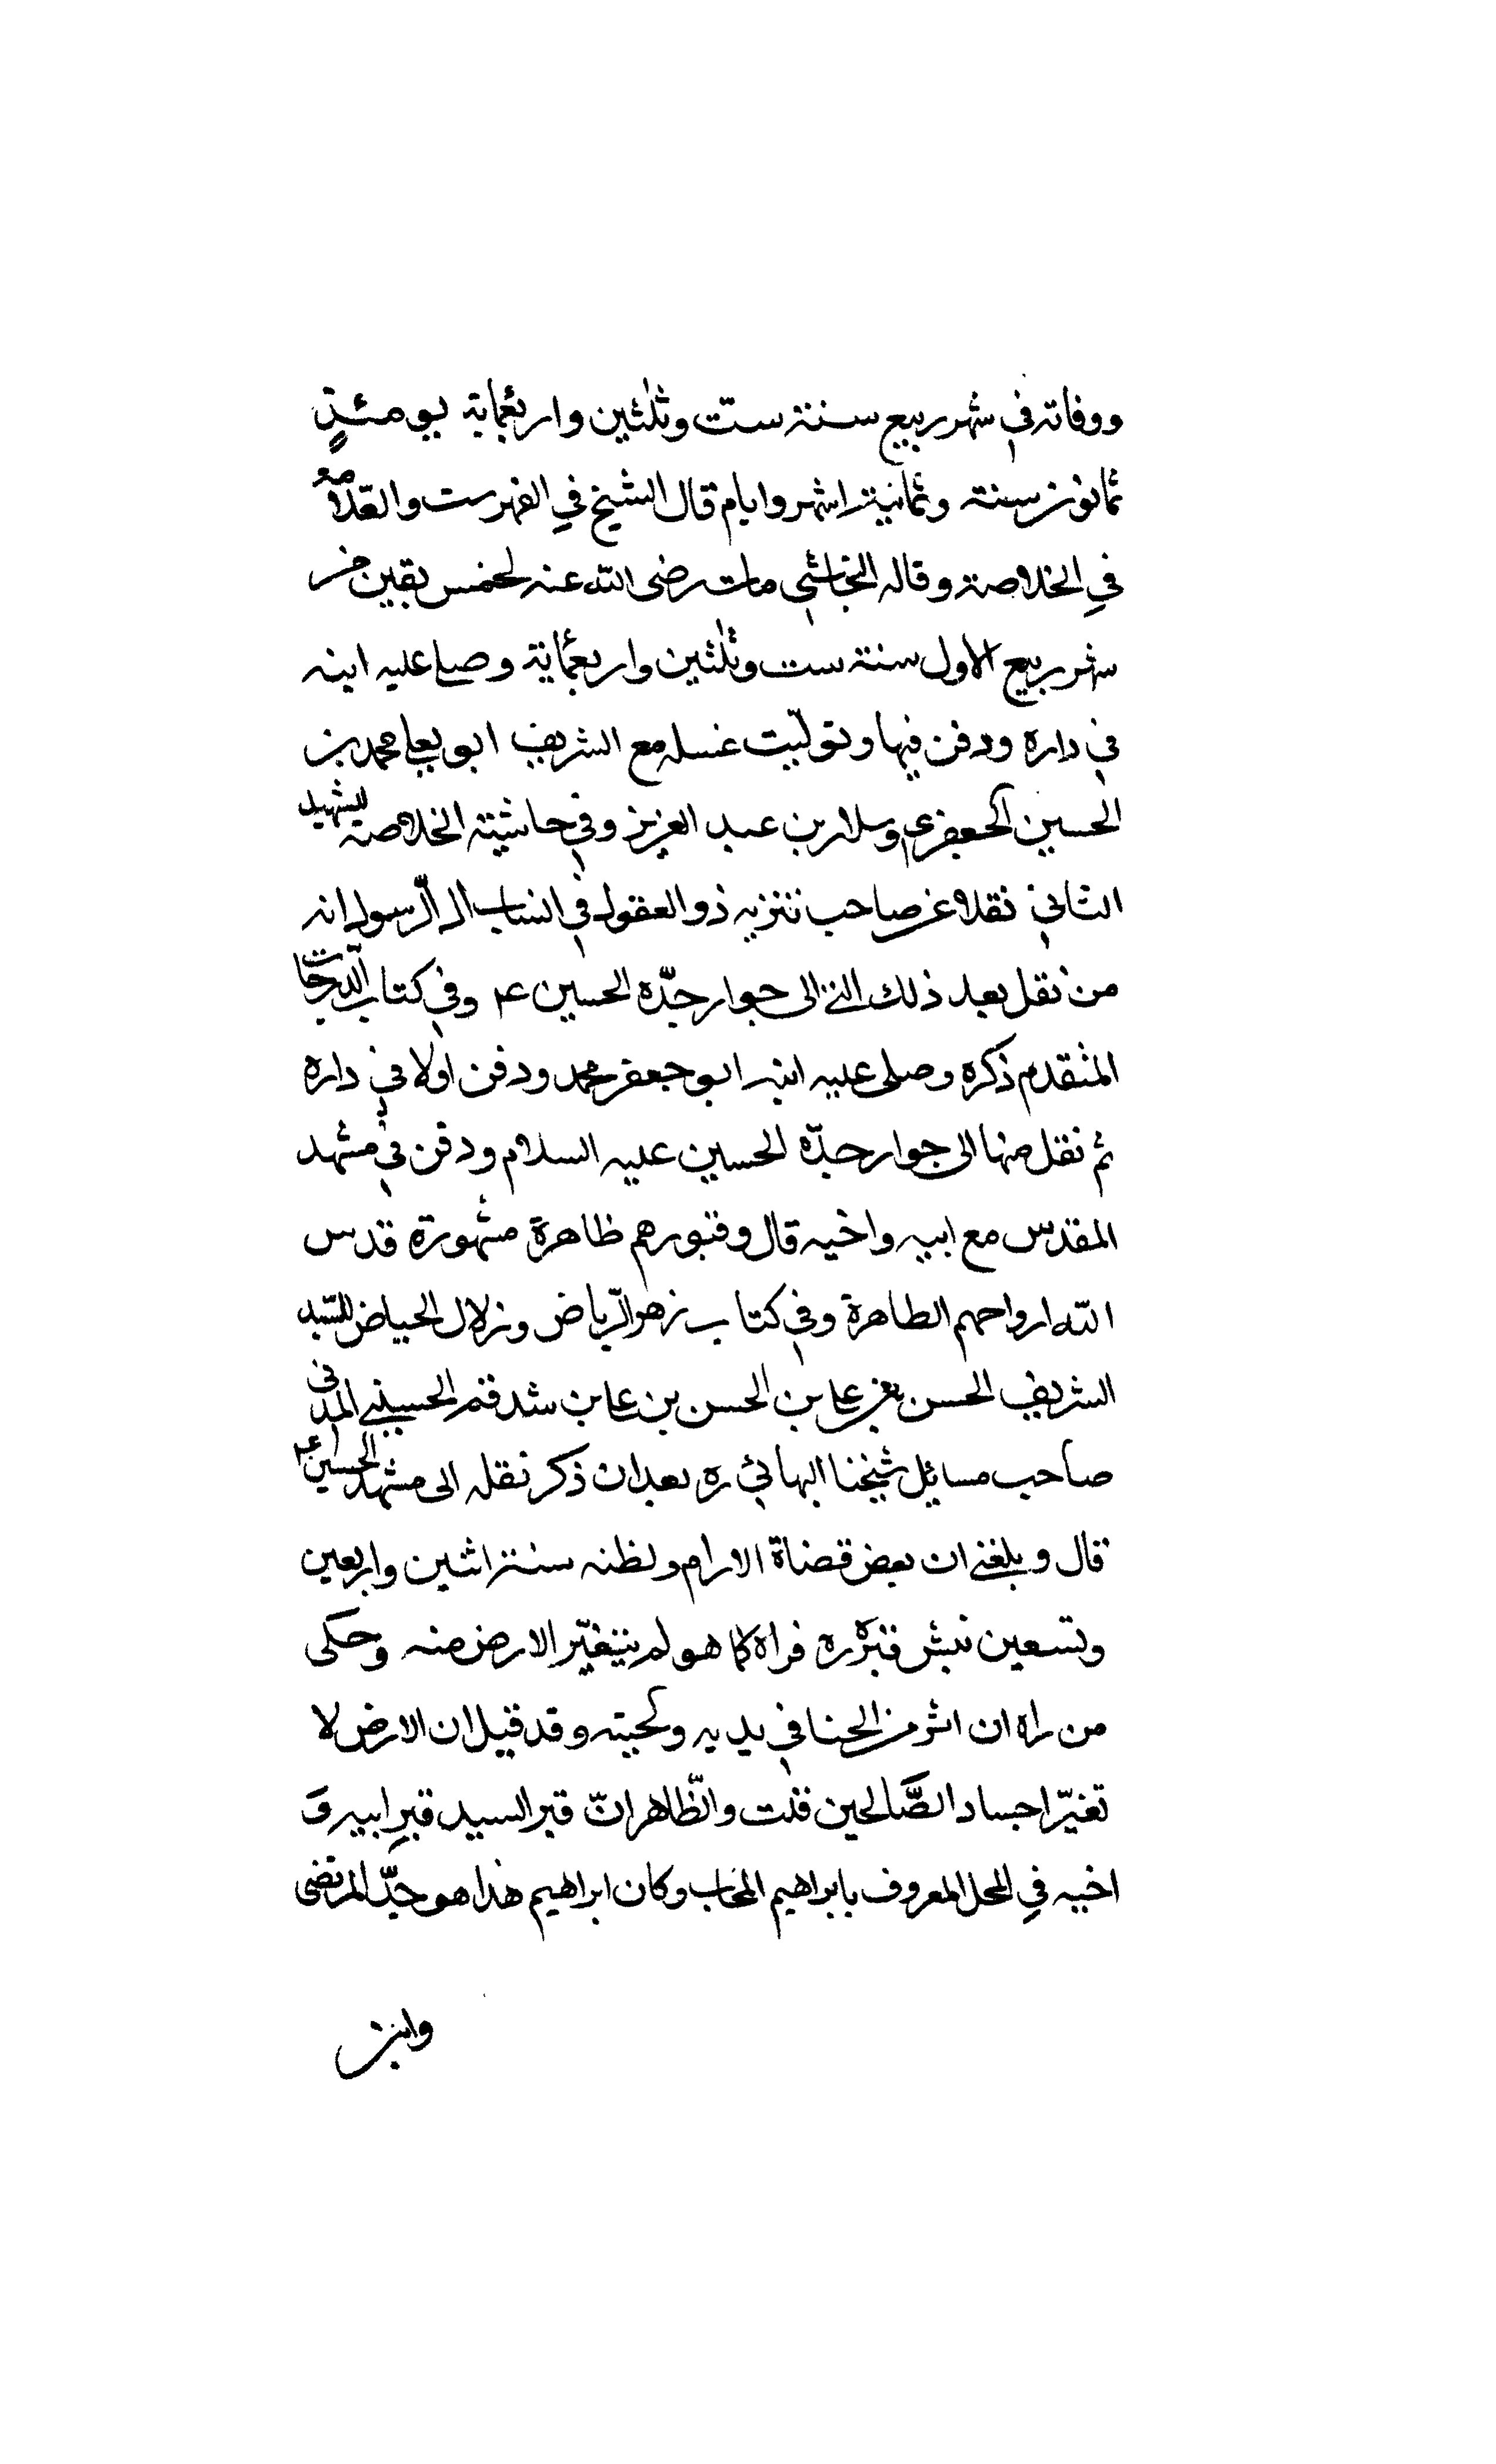 ووفاته في شهر ربيع سنة ستّ وثلثين واربعماية يومئذٍ
ثمانون سنة وثمانية اشهر وايام قال الشيخ في الفهرست والعّلامة
في الخلاصة وقاله النجاشي مات رضى الله عنه لخمس بقين من
شهر ربيع الاول سنة ست وثلثين واربعماية وصلى عليه ابنه
في داره ودفن فيها وتولّيت غسله مع الشريف ابو يعلى محمد بن
الحسين الجعفرى وسلار بن عبد العزيز وفي حاشية الخلاصة للشهيد
الثاني نقلا عن صاحب تنزيه ذو العقول في انساب ال الّرسول انه
من نقل بعد ذلك الى جوار جدّه الحسين ع وفي كتاب الّدرجات
المتقدم ذكره وصلى عليه ابنه ابو جعفر محمد ودفن اولا في داره
ثم نقل منها الى جوار جدّه الحسين عليه السلام ودفن في مشهد
المقدس مع ابيه واخيه قال وقبورهم ظاهرة مشهورة قدس
الله ارواحهم الطاهرة وفي كتاب زهر الّرياض وزلال الحياض للسّيد
الشريف الحسن بن على بن الحسن بن على بن شدقم الحسينى المدنى
صاحب مسائل شيخنا البهائي ره بعد ان ذكر نقله الى مشهد الحسين ع
قال وبلغنى ان بعض قضاة الاروام ولظنه سنة اثنين واربعين
وتسعين نبش قبره ره فراه كما هو لم يتغيّر الارض منه وحكى
من راه ان اثر من الحنا في يديه ولحيته وقد قيل ان الارض لا
تغيّر اجساد الصَّالحين قلت والّظاهر انّ قبر السيد قبر ابيه وَ
اخيه في المحل المعروف بابراهيم المجاب وكان ابراهيم هذا هو جدّ المرتضى
وابن